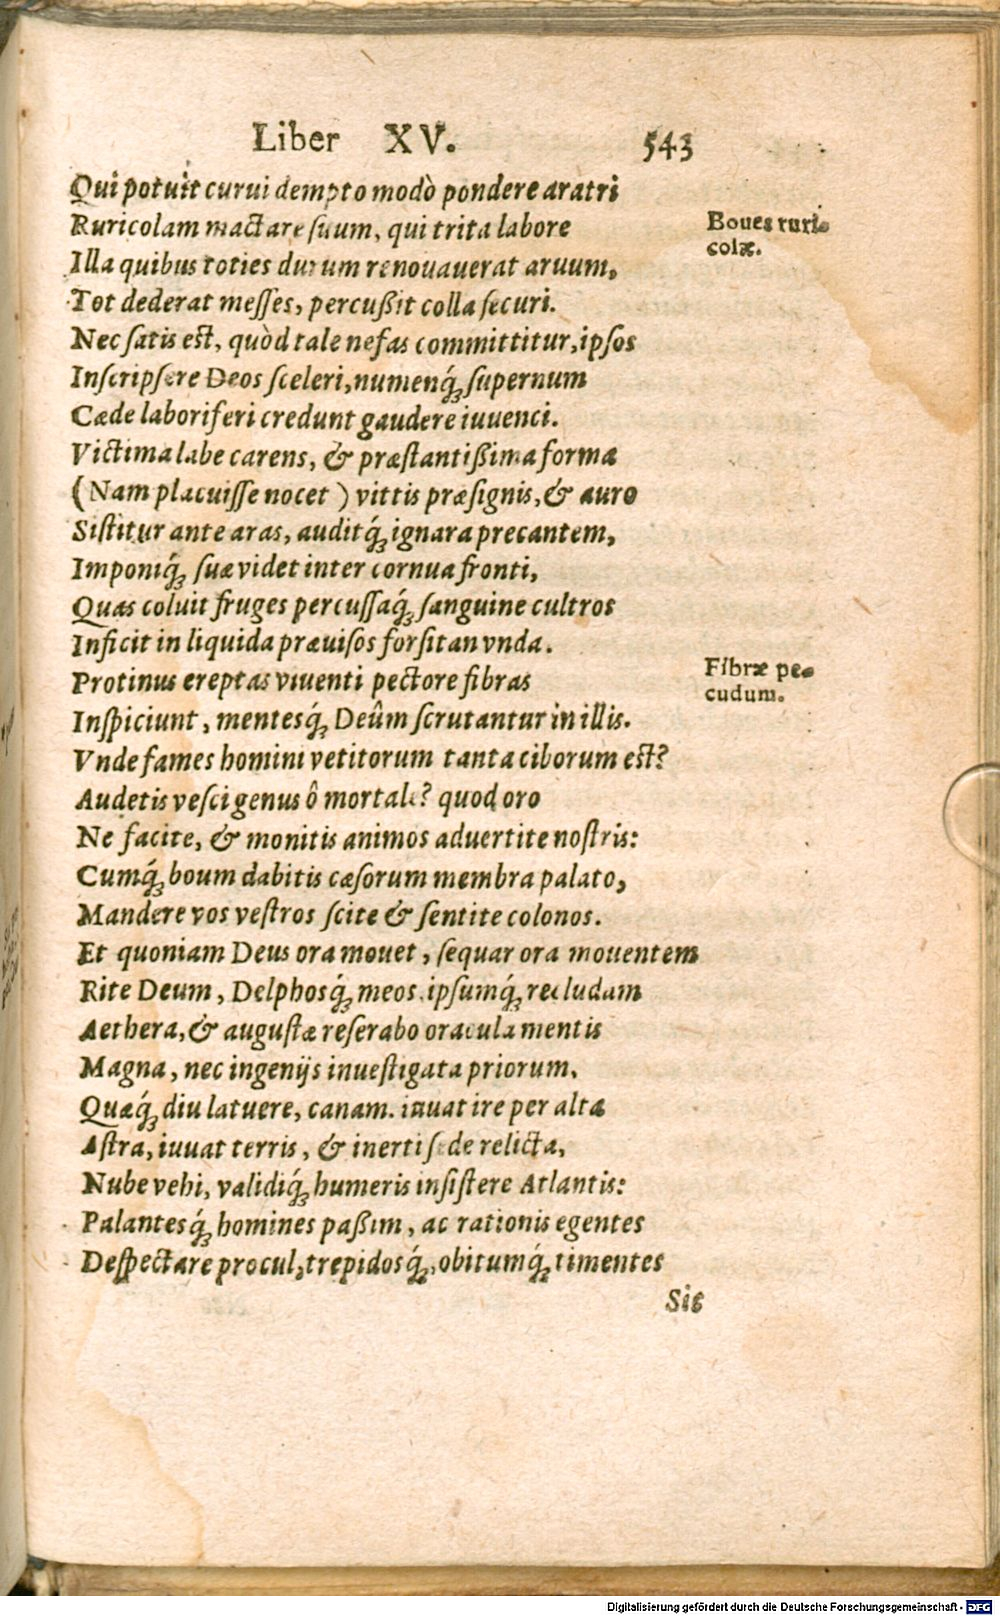 Liber XV. 543
Qui potuit curui dempto modò pondere aratri
Ruricolam mactare suum, qui trita labore
Boues ruri-
colæ.
Illa quibus toties durum renouauerat aruum,
Tot dederat messes, percußit colla securi.
Nec satis est, quòd tale nefas committitur, ipsos
Inscripsere Deos sceleri, numenq́; supernum
Cæde laboriferi credunt gaudere iuuenci.
Victima labe carens, & præstantißima forma
(Nam placuisse nocet) vittis præsignis, & auro
Sistitur ante aras, auditq́; ignara precantem,
Imponiq́; suæ videt inter cornua fronti,
Quas coluit fruges percussaq́; sanguine cultros
Inficit in liquida præuisos forsitan vnda.
Protinus ereptas viventi pectore fibras
Fibræ pe-
cudum.
Inspiciunt, mentesq́; Deûm scrutantur in illis.
Vnde fames homini vetitorum tanta ciborum est?
Audetis vesci genus ô mortale? quod oro
Ne facite, & monitis animos aduertite nostris:
Cumq́; boum dabitis cæsorum membra palato,
Mandere vos vestros scite & sentite colonos.
Et quoniam Deus ora mouet, sequar ora mouentem
Rite Deum, Delphosq́; meos, ipsumq́; recludam
Aethera, & augustæ reserabo oracula mentis
Magna, nec ingenijs inuestigata priorum.
Quæq́; diu latuere, canam. iuuat ire per alta
Astra, iuuat terris, & inerti sede relicta,
Nube vehi, validiq́; humeris insistere Atlantis:
Palantesq́; homines paßim, ac rationis egentes
Despectare procul, trepidosq́;, obitumq́; timentes
Sic
Digitalisierung gefördert durch die Deutsche Forschungsgemeinschaft - DFG